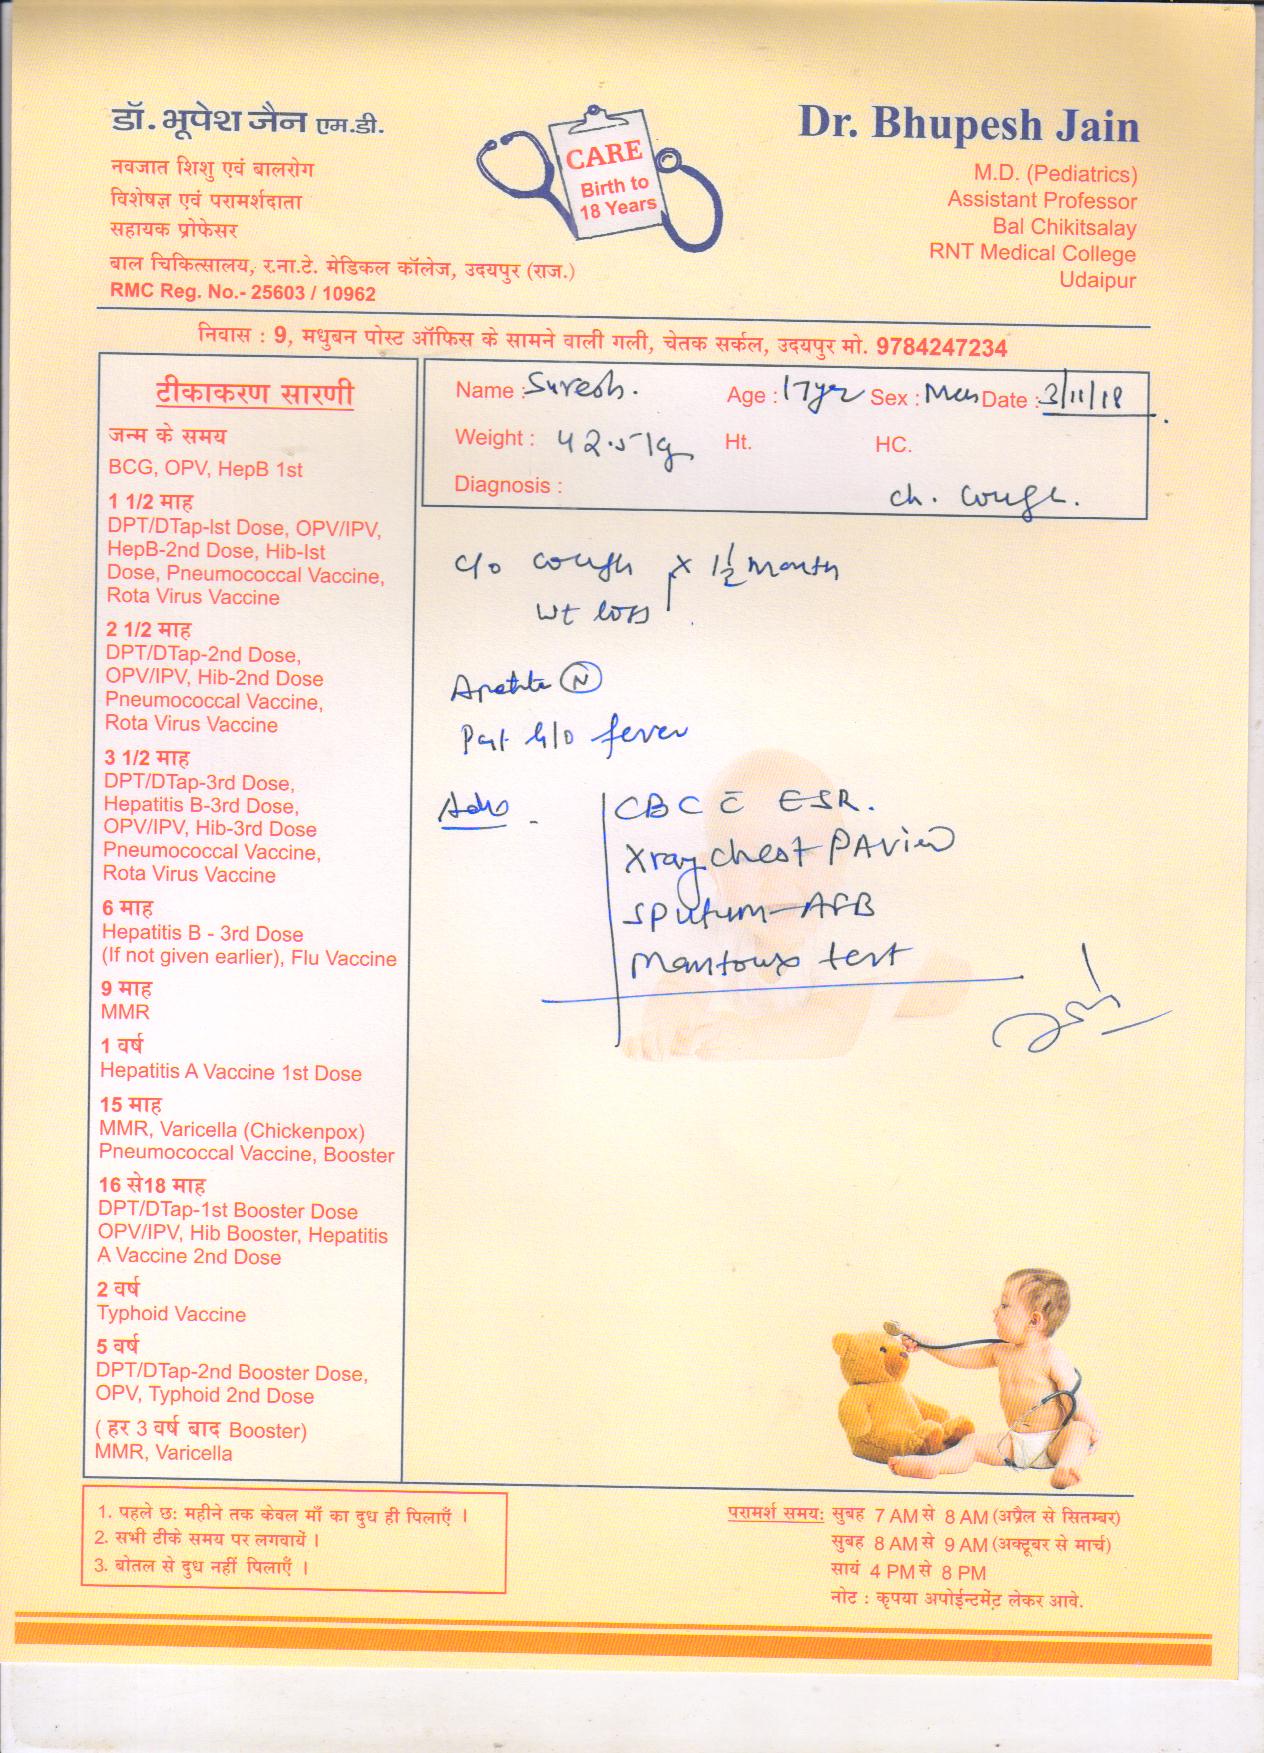 डॉ. भूपेश जैन एम.डी.
नवजात शिशु एवं बालरोग
विशेषज्ञ एवं परामर्शदाता
सहायक प्रोफेसर
बाल चिकित्सालय, र.ना.टे. मेडिकल कॉलेज, उदयपुर (राज.)
RMC Reg. No.- 25603 / 10962
CARE
Birth to
18 Years
Dr. Bhupesh Jain
M.D. (Pediatrics)
Assistant Professor
Bal Chikitsalay
RNT Medical College
Udaipur
निवास : 9, मधुबन पोस्ट ऑफिस के सामने वाली गली, चेतक सर्कल, उदयपुर मो. 9784247234
टीकाकरण सारणी
जन्म के समय
BCG, OPV, HepB 1st
1 1/2 माह
DPT/DTap-Ist Dose, OPV/IPV,
HepB-2nd Dose, Hib-Ist
Dose, Pneumococcal Vaccine,
Rota Virus Vaccine
2 1/2 माह
DPT/DTap-2nd Dose,
OPV/IPV, Hib-2nd Dose
Pneumococcal Vaccine,
Rota Virus Vaccine
3 1/2 माह
DPT/DTap-3rd Dose,
Hepatitis B-3rd Dose,
OPV/IPV, Hib-3rd Dose
Pneumococcal Vaccine,
Rota Virus Vaccine
6 माह
Hepatitis B - 3rd Dose
(If not given earlier), Flu Vaccine
9 माह
MMR
1 वर्ष
Hepatitis A Vaccine 1st Dose
15 माह
MMR, Varicella (Chickenpox)
Pneumococcal Vaccine, Booster
16 से18 माह
DPT/DTap-1st Booster Dose
OPV/IPV, Hib Booster, Hepatitis
A Vaccine 2nd Dose
2 वर्ष
Typhoid Vaccine
5 वर्ष
DPT/DTap-2nd Booster Dose,
OPV, Typhoid 2nd Dose
( हर 3 वर्ष बाद Booster)
MMR, Varicella
Name : Suresh. Age : 17yr Sex : Date : 3/11/18
Weight : 42.5kg Ht. HC.
Diagnosis : ch. cough.
c/o cough x 1 1/2 month
wt loss
Apetite Ⓝ
Past h/o fever
Adv
CBC c̄ ESR.
Xray chest PA view
Sputum-AFB
Mantoux test
1. पहले छः महीने तक केवल माँ का दुध ही पिलाएँ ।
2. सभी टीके समय पर लगवायें ।
3. बोतल से दुध नहीं पिलाएँ ।
परामर्श समय: सुबह 7 AM से 8 AM (अप्रैल से सितम्बर)
सुबह 8 AM से 9 AM (अक्टूबर से मार्च)
सायं 4 PM से 8 PM
नोट : कृपया अपोईन्टमेंट लेकर आवे.